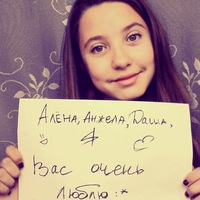 Алёна, Анжела, Даша,
Вас очень
люблю :*